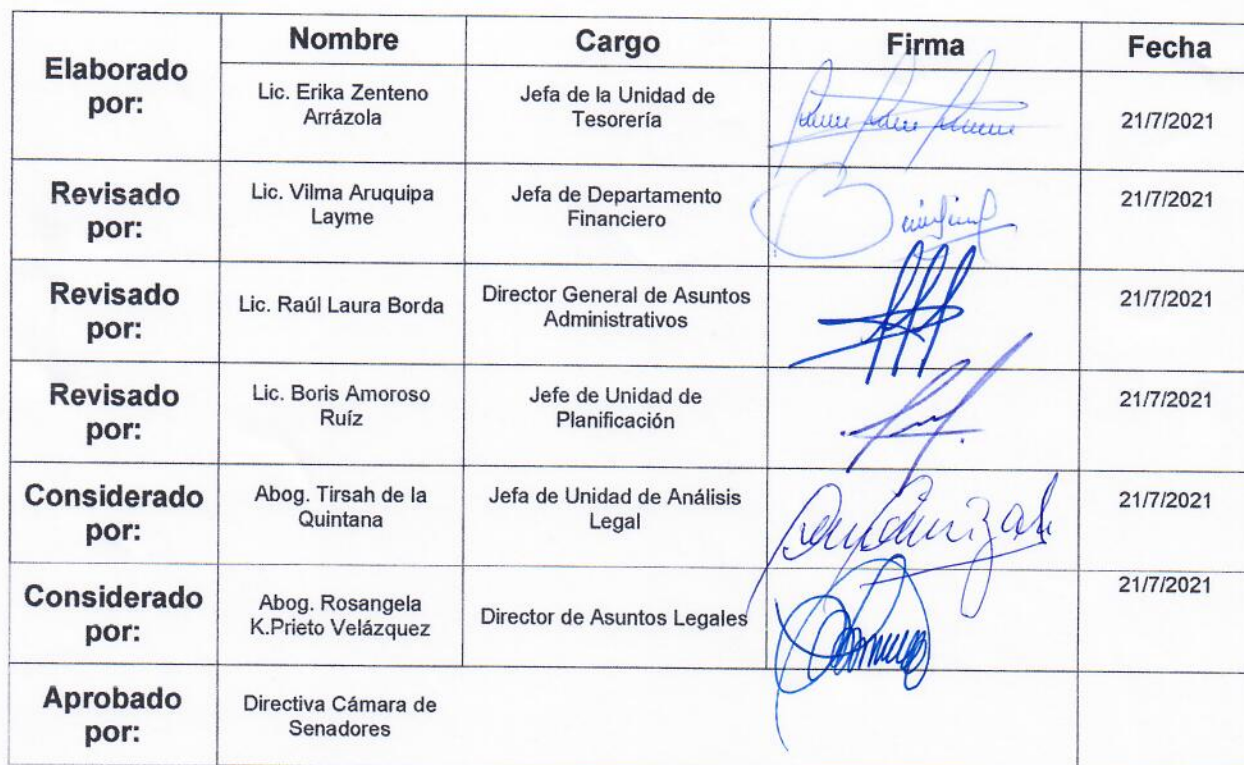 Elaborado por:
Nombre
Cargo
Firma
Fecha
Lic. Erika Zenteno
Arrázola
Jefa de la Unidad de
Tesorería
21/7/2021
Revisado
por:
Lic. Vilma Aruquipa
Layme
Jefa de Departamento
Financiero
21/7/2021
Revisado
por:
Lic. Raúl Laura Borda
Director General de Asuntos
Administrativos
21/7/2021
Revisado
por:
Lic. Boris Amoroso
Ruíz
Jefe de Unidad de
Planificación
21/7/2021
Considerado
por:
Abog. Tirsah de la
Quintana
Jefa de Unidad de Análisis
Legal
21/7/2021
Considerado
por:
Abog. Rosangela
K.Prieto Velázquez
Director de Asuntos Legales
21/7/2021
Aprobado
por:
Directiva Cámara de
Senadores